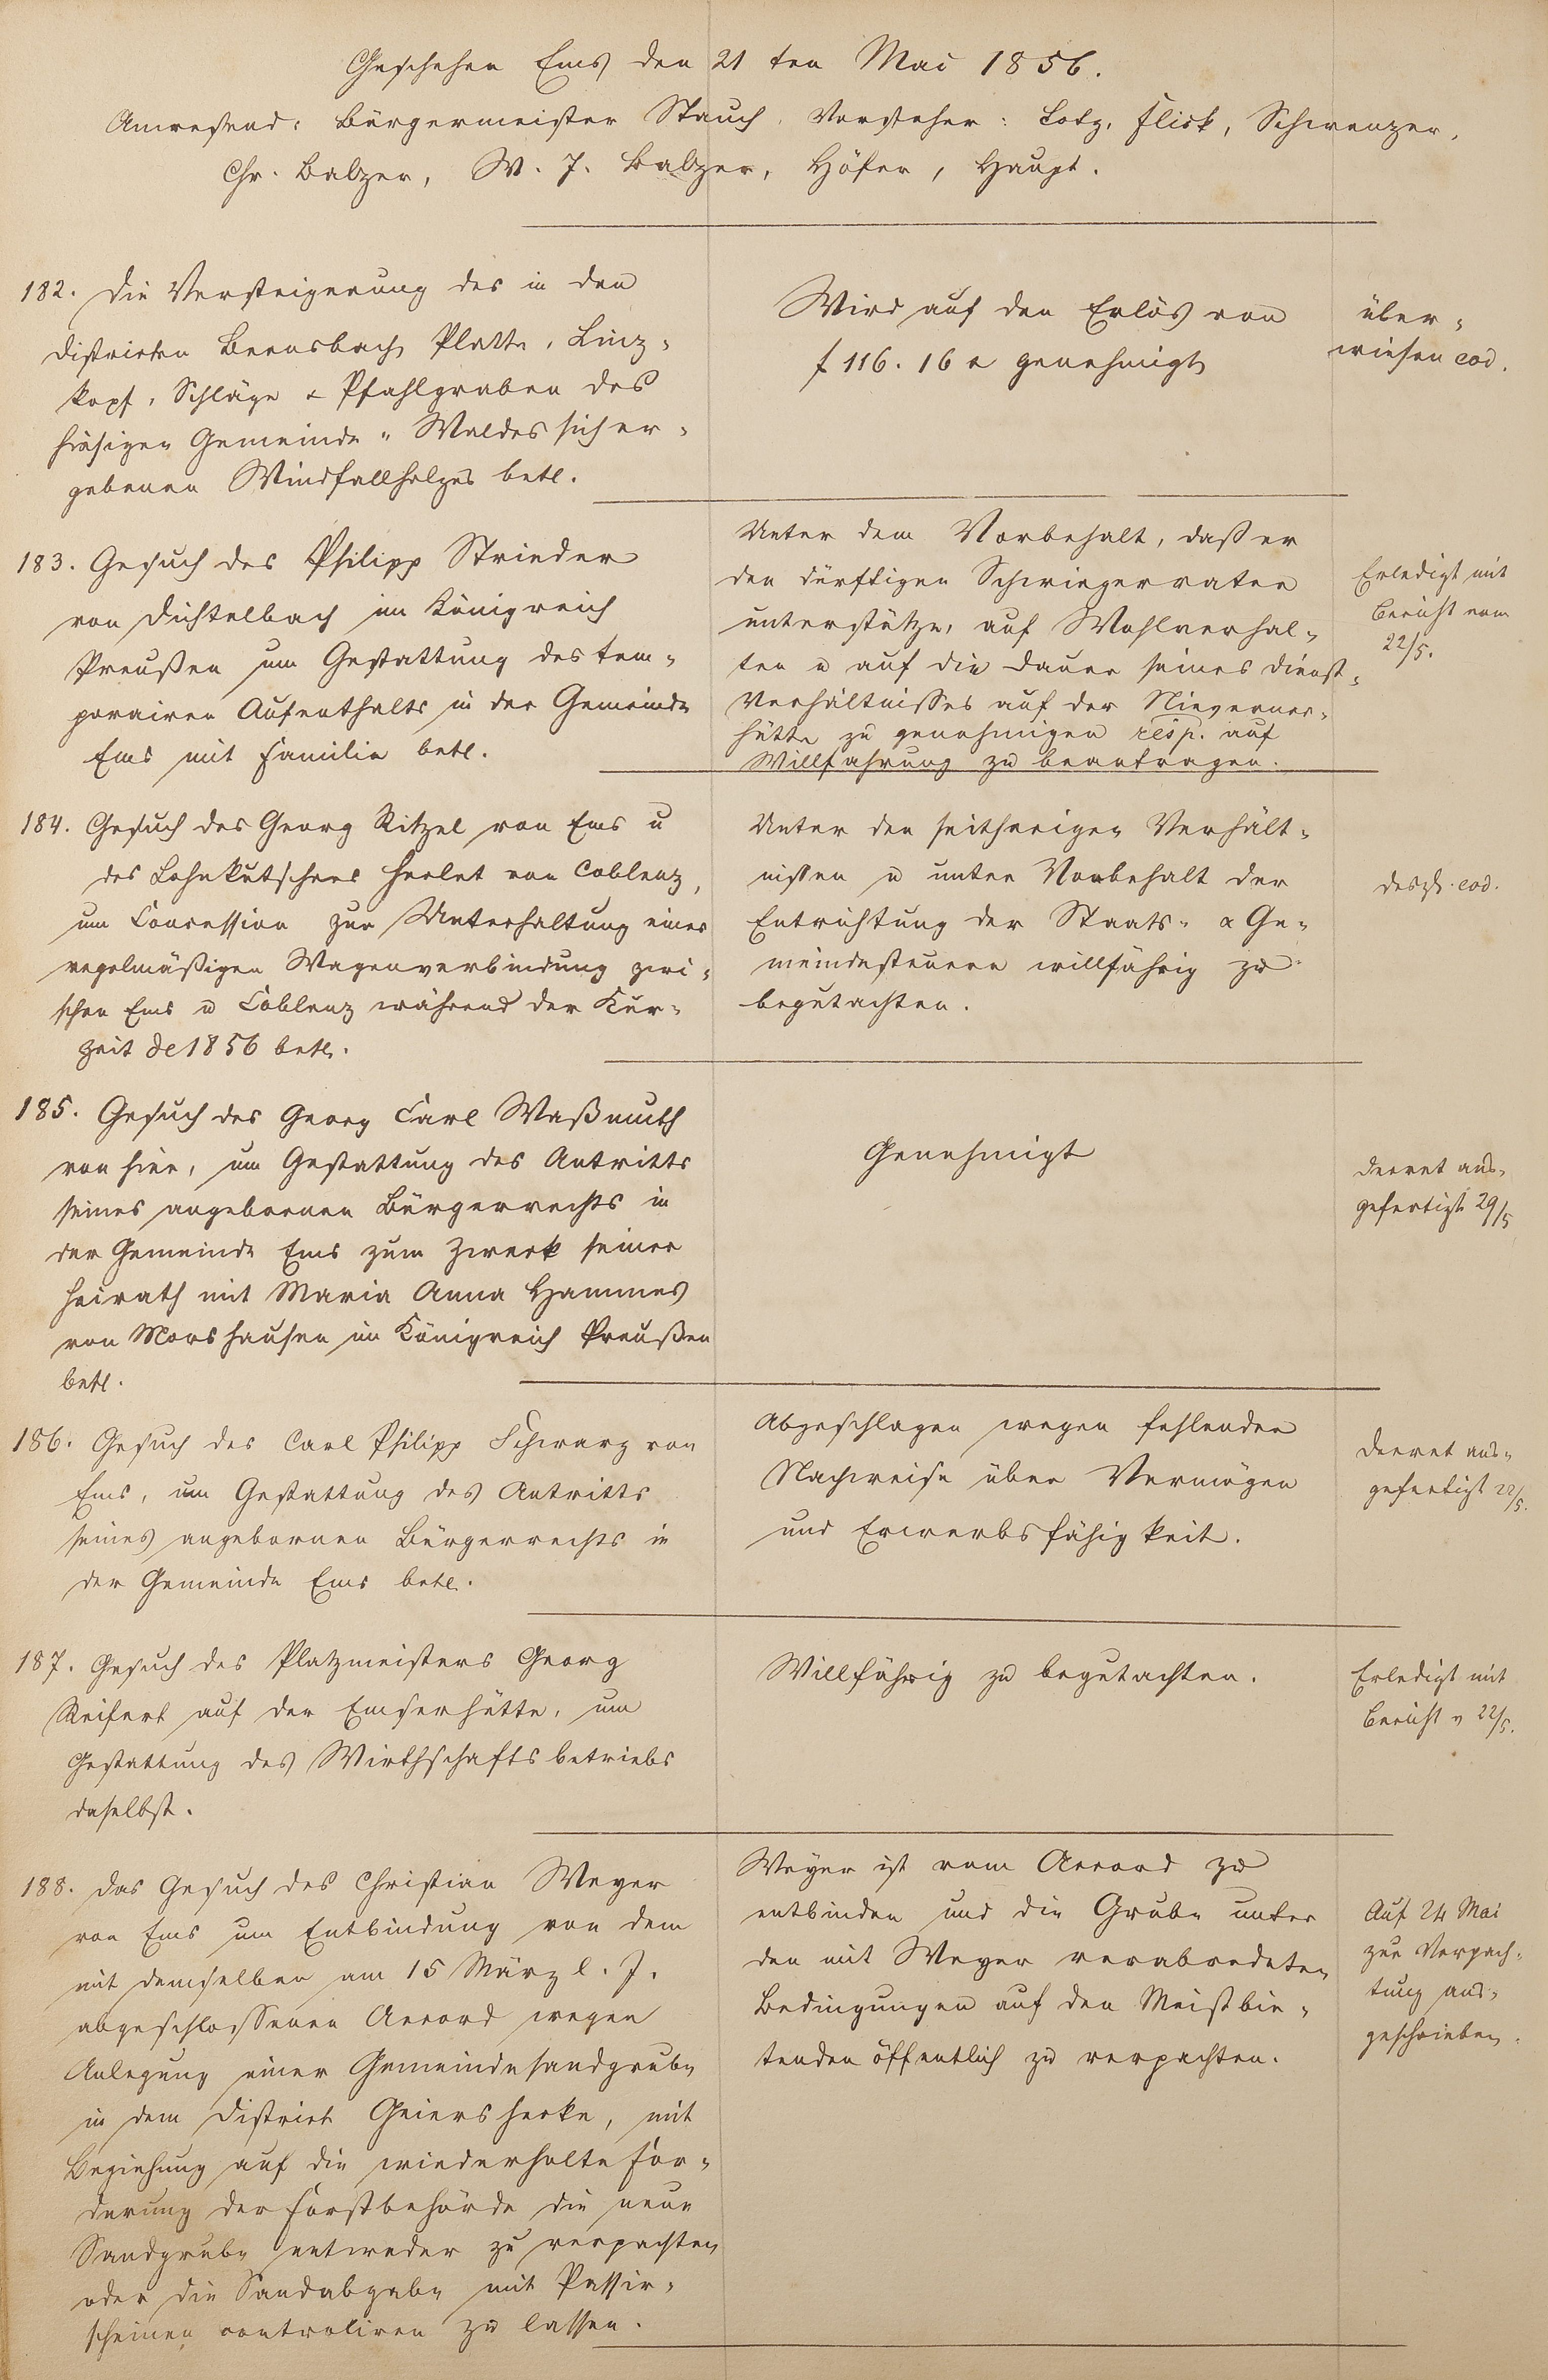 Geschehen Ems den 21 ten Mai 1856.
Anwesend: Bürgermeister Stauch, Vorsteher: Lotz, Flick, Schwenzer,
Chr. Balzer, W. J. Balzer, Höfer, Haupt.
182. Die Versteigerung des in den
Districten Beensbach, Platte, Linz-
kopf, Schläge & Pfahlgraben des
hiesigen Gemeinde-Waldes sich er-
gebenen Windfallholzes betl.
Wird auf den Erlös von
f 116. 16 x genehmigt
über-
wiesen eod.
183. Gesuch des Philipp Strieder
von Dichtelbach im Königreich
Preußen um Gestattung des tem-
porairen Aufenthalts in der Gemeinde
Ems mit Familie betl.
Unter dem Vorbehalt, daß er
den dürftigen Schwiegervater
unterstütze, auf Wohlverhal-
ten u auf die Dauer seines Dienst-
Verhältnisses auf der Nieverner-
hütte zu genehmigen resp. auf
Willfahrung zu beantragen.
Erledigt mit
Bericht vom
22/5.
184. Gesuch des Georg Ritzel von Ems u
des Lohnkutschers Heelet von Coblenz,
um Concession zur Unterhaltung einer
regelmäßigen Wagenverbindung zwi-
schen Ems u Coblenz während der Kur-
zeit de 1856 betl.
Unter den seitherigen Verhält-
nissen u unter Vorbehalt der
Entrichtung der Staats- & Ge-
meindesteuern willfährig zu
begutachten.
desgl. eod.
185. Gesuch des Georg Carl Waßmuth
von hier, um Gestattung des Antritts
seines angebornen Bürgerrechts in
der Gemeinde Ems zum Zweck seiner
Heirath mit Maria Anna Hammes
von Morshausen im Königreich Preußen
betl.
Genehmigt
Decret aus-
gefertigt 29/5
186. Gesuch des Carl Philipp Schwarz von
Ems, um Gestattung des Antritts
seines angebornen Bürgerrechts in
der Gemeinde Ems betl.
Abgeschlagen wegen fehlender
Nachweise über Vermögen
und Erwerbsfähigkeit.
Decret aus-
gefertigt 22/5.
187. Gesuch des Platzmeisters Georg
Reifert auf der Emserhütte, um
Gestattung des Wirthschaftsbetriebs
daselbst.
Willfährig zu begutachten.
Erledigt mit
Bericht v 22/5.
188. Das Gesuch des Christian Weyer
von Ems um Entbindung von dem
mit demselben am 15 März l. J.
abgeschlossenen Accord wegen
Anlegung einer Gemeindesandgrube
in dem District Geiershecke, mit
Beziehung auf die wiederholte For-
derung der Forstbehörde die neue
Sandgrube entweder zu verpachten
oder die Sandabgabe mit Passir-
scheinen controliren zu lassen.
Weyer ist vom Accord zu
entbinden und die Grube unter
den mit Weyer verabredeten
Bedingungen auf den Meistbie-
tenden öffentlich zu verpachten.
Auf 24 Mai
zur Verpach-
tung aus-
geschrieben.